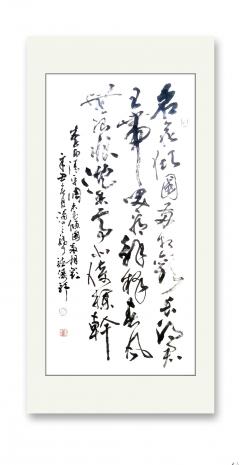 名花傾國兩相歡長得君
王帶笑看解釋春風
無限恨沉香亭北倚欄幹
李白清平調名花傾國兩相歡
辛丑年